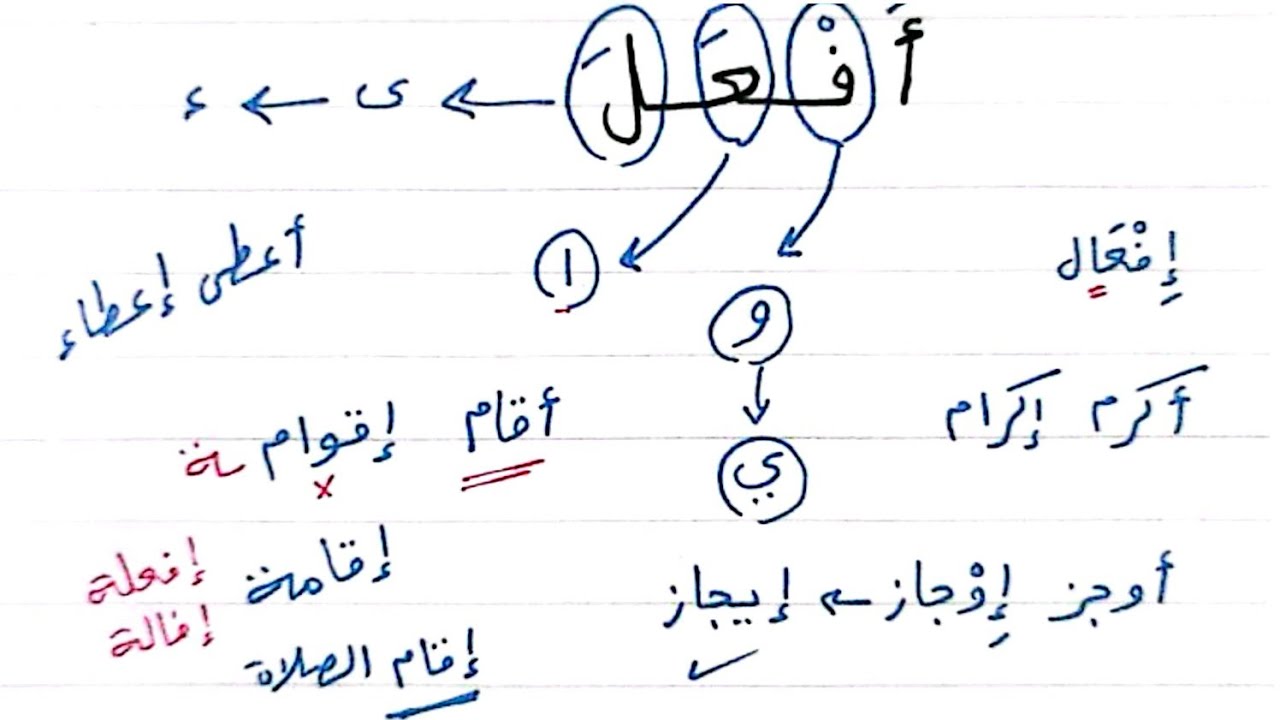 أَفْعَلَ ← ى ← ء
إِفْعَال
و
ا
أعطى إعطاء
أكرم إكرام
ي
أقام إقوام ـة
x
أوجز إِوْجاز ← إيجاز
إقامة إفعلة
إفالة
إقام الصلاة